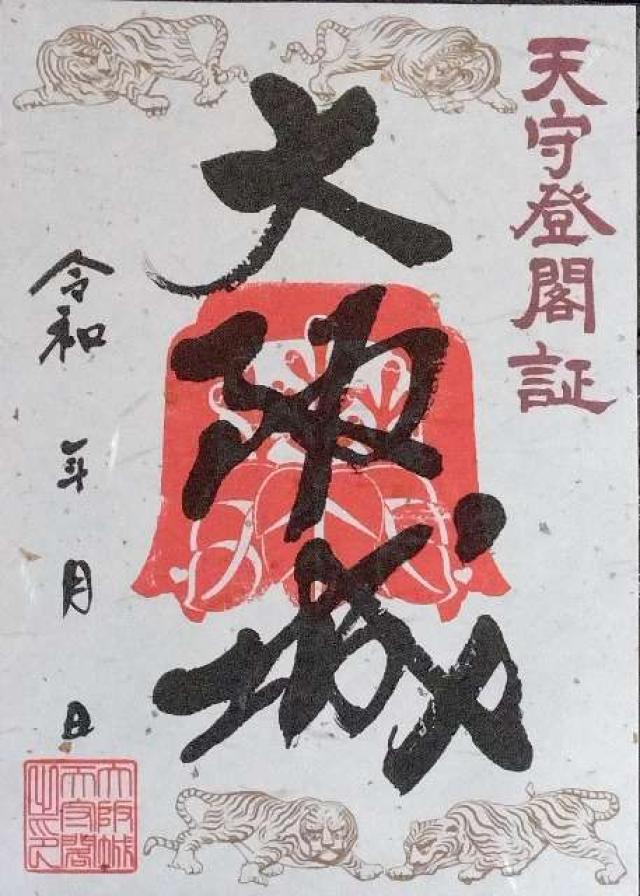 天守登閣証
大阪城
令和 年 月 日
大阪城天守閣之印